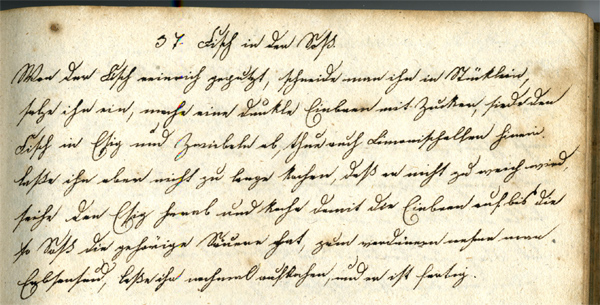 37. Fisch in der Soß.
Wen der Fisch reinich gepuzt, schneide man ihn in Stüklein,
salze ihn ein, mache eine dunkle Einbren mit Zucker, siede den
Fisch in Esig und Zwiebeln ab, thue auch Limonischellen hinein
laße ihn aber nicht zu lange kochen, daß er nicht zu weich wird,
seihe den Esig herab und koche damit die Einbren auf bis die
Soß die gehörige Säuere hat, zum verdinnen nehme man
Erbsensud, laße ihn nochmal aufkochen, und er ist fertig.